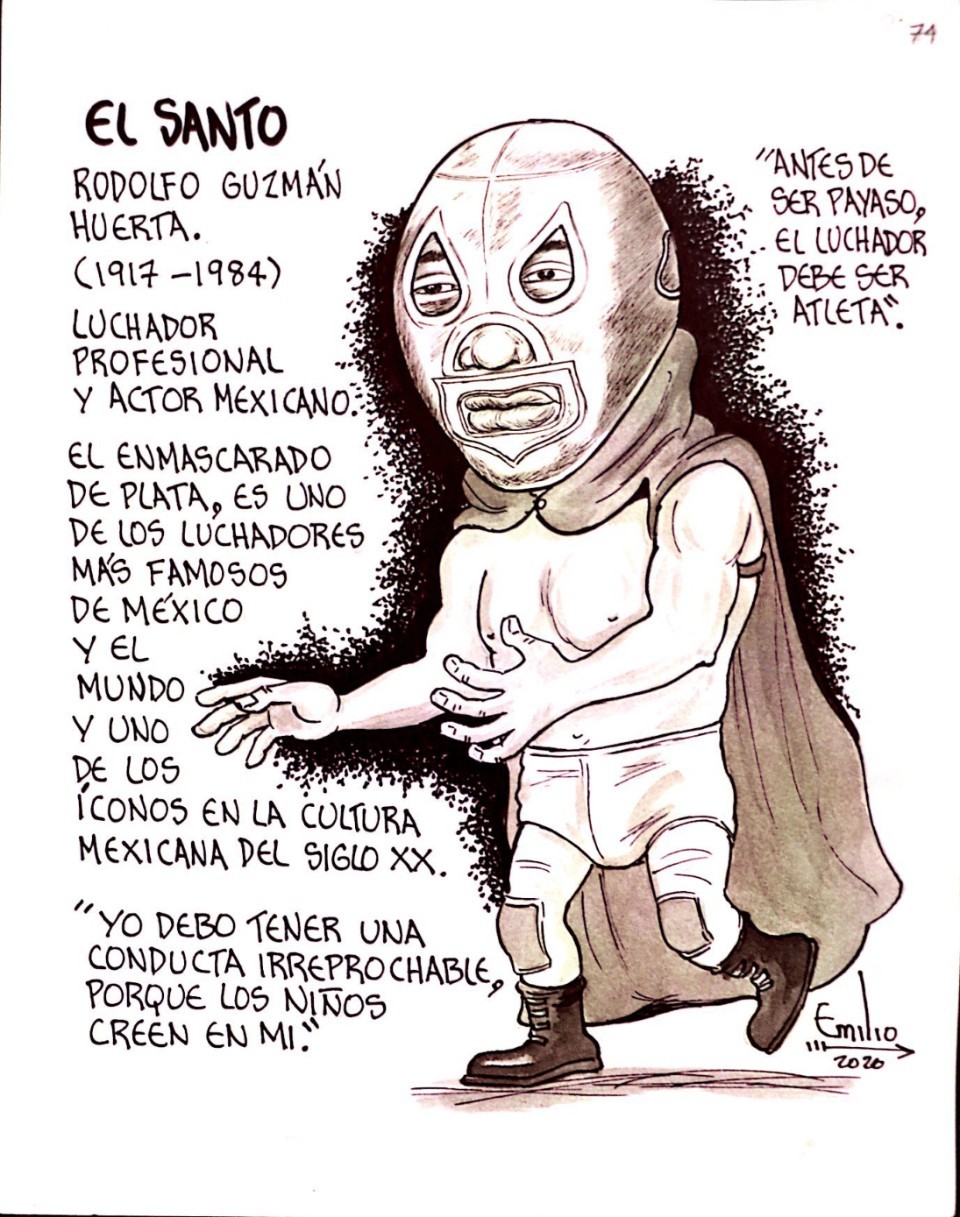 74
EL SANTO
RODOLFO GUZMÁN
HUERTA.
(1917-1984)
LUCHADOR
PROFESIONAL
Y ACTOR MEXICANO.
EL ENMASCARADO
DE PLATA, ES UNO
DE LOS LUCHADORES
MÁS FAMOSOS
DE MÉXICO
Y EL
MUNDO
Y UNO
DE LOS
ÍCONOS EN LA CULTURA
MEXICANA DEL SIGLO XX.
"YO DEBO TENER UNA
CONDUCTA IRREPROCHABLE,
PORQUE LOS NIÑOS
CREEN EN MI."
"ANTES DE
SER PAYASO,
EL LUCHADOR
DEBE SER
ATLETA".
Emilio
2020